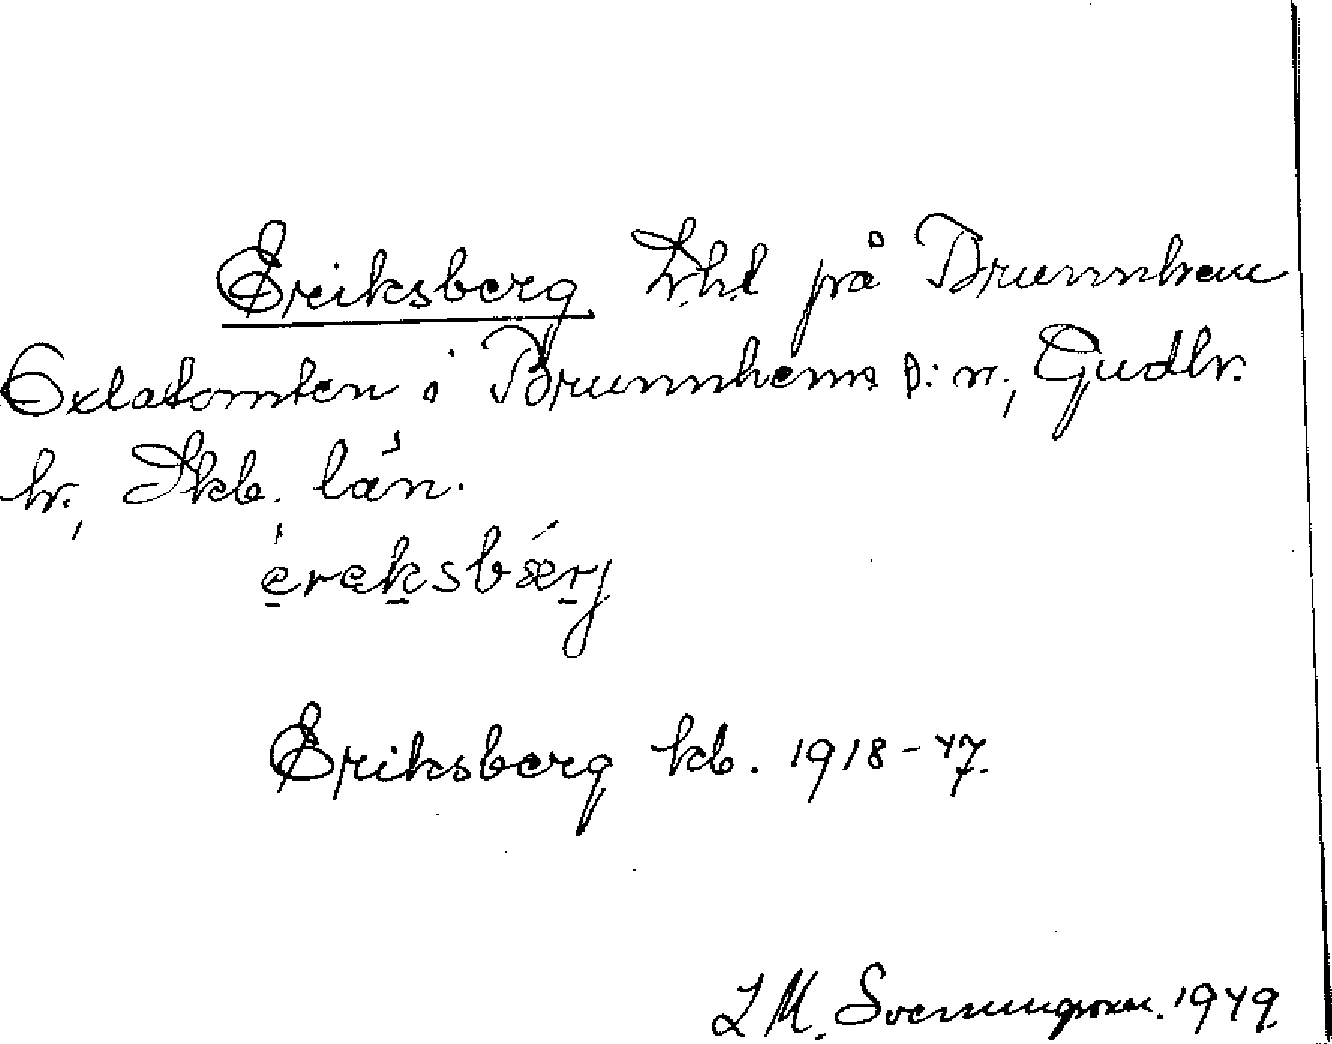 Eriksberg lht på Brunnhem
Exlatomten i Brunnhems s:n, Gudh.
h., Skb. län.
èreksbǽrj
Eriksberg kb. 1918-47.
L M. Svenungsson. 1949.